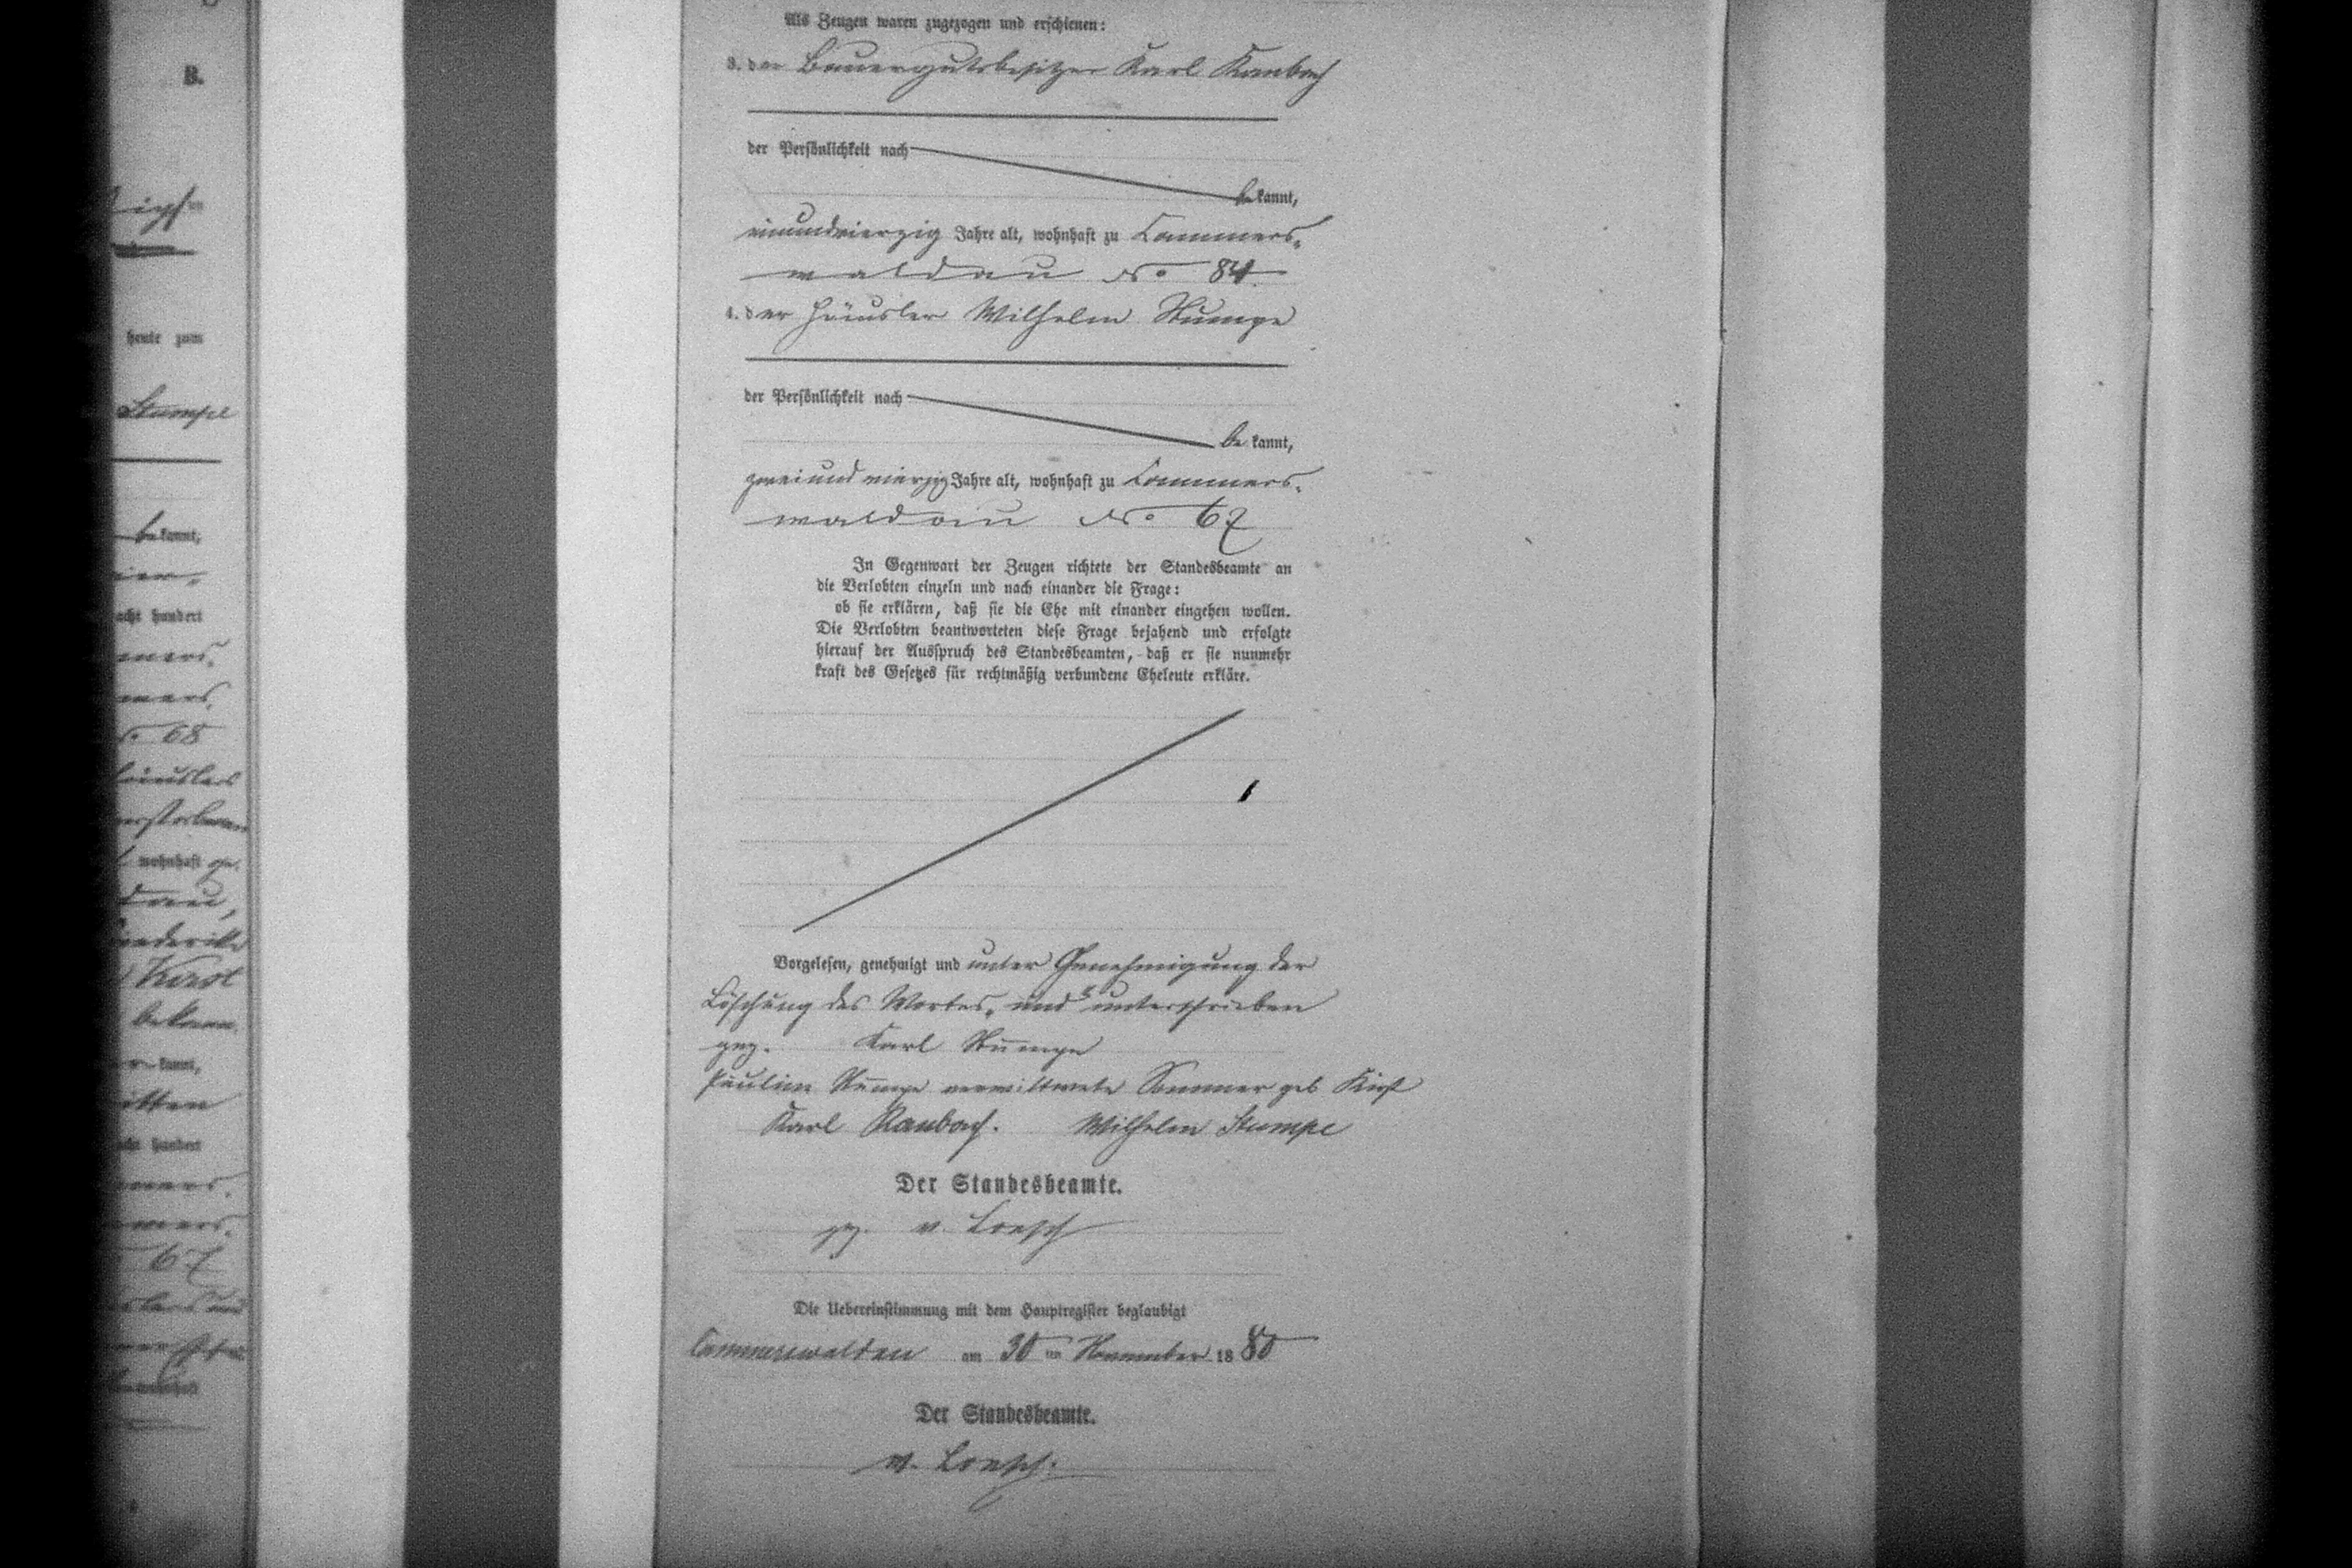 B.
heute zum
Stumpe
bekannt,
acht hundert
mers,
mers,
No 68
Häuslers
verstorbenen
wohnhaft ge-
dau,
Friederike
Kirst
bekann
kannt,
itten
acht hundert
mers,
mers,
67
Als Zeugen waren zugezogen und erschienen:
3. der Bauergutsbesitzer Karl Raubach
der Persönlichkeit nach
bekannt,
einundvierzig Jahre alt, wohnhaft zu Cammers-
waldau No 84.
4. der Häusler Wilhelm Stumpe
der Persönlichkeit nach
be kannt,
zweiundvierzig Jahre alt, wohnhaft zu Cammers-
waldau No 67
In Gegenwart der Zeugen richtete der Standesbeamte an
die Verlobten einzeln und nach einander die Frage:
ob sie erklären, daß sie die Ehe mit einander eingehen wollen.
Die Verlobten beantworteten diese Frage bejahend und erfolgte
hierauf der Ausspruch des Standesbeamten, daß er sie nunmehr
kraft des Gesetzes für rechtmäßig verbundene Eheleute erkläre.
Vorgelesen, genehmigt und unter Genehmigung der
Löschung des Wortes „und“ unterschrieben
gez. Karl Stumpe
Pauline Stumpe verwittwete Sommer geb Kirst
Karl Raubach. Wilhelm Stumpe
Der Standesbeamte.
gez. v. Loesch
Die Uebereinstimmung mit dem Hauptregister beglaubigt
Cammerswaldau am 30 ten November 1880
Der Standesbeamte.
v. Loesch.